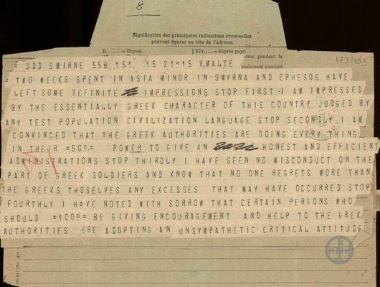 8
Signification des principales indications éventuelles
pouvant figurer en tête de l'adresse.
ODD SMIRNE 558 151 15 21-15 V.MALTE
- TWO WEEKS SPENT IN ASIA MINOR IN SMYRNA AND EPHESOS HAVE
LEFT SOME DEFINITE IMPRESSIONS STOP FIRST-I AM IMPRESSED
BY THE ESSENTIALLY GREEK CHARACTER OF THIS COUNTRY JUDGED BY
ANY TEST POPULATION CIVILIZATION LANGUAGE STOP SECONDLY I AM
CONVINCED THAT THE GREEK AUTHORITIES ARE DOING EVERY THING
IN THEIR =50P= POWER TO LIVE AN HONEST AND EFFICIENT
ADMINISTRATIONS STOP THIRDLY I HAVE SEEN NO MISCONDUCT ON THE
PART OF GREEK SOLDIERS AND KNOW THAT NO ONE REGRETS MORE THAN
THE GREEKS THOSELVES ANY EXCESSES THAT MAY HAVE OCCURRED STOP
FOURTHLY I HAVE NOTED WITH SORROW THAT CERTAIN PERSONS WHO
SHOULD =100P= BE GIVING ENCOURAGEMENT AND HELP TO THE GREEK
AUTHORITIES ARE ADOPTING AN UNSYMPATHETIC CRITICAL ATTITUDE